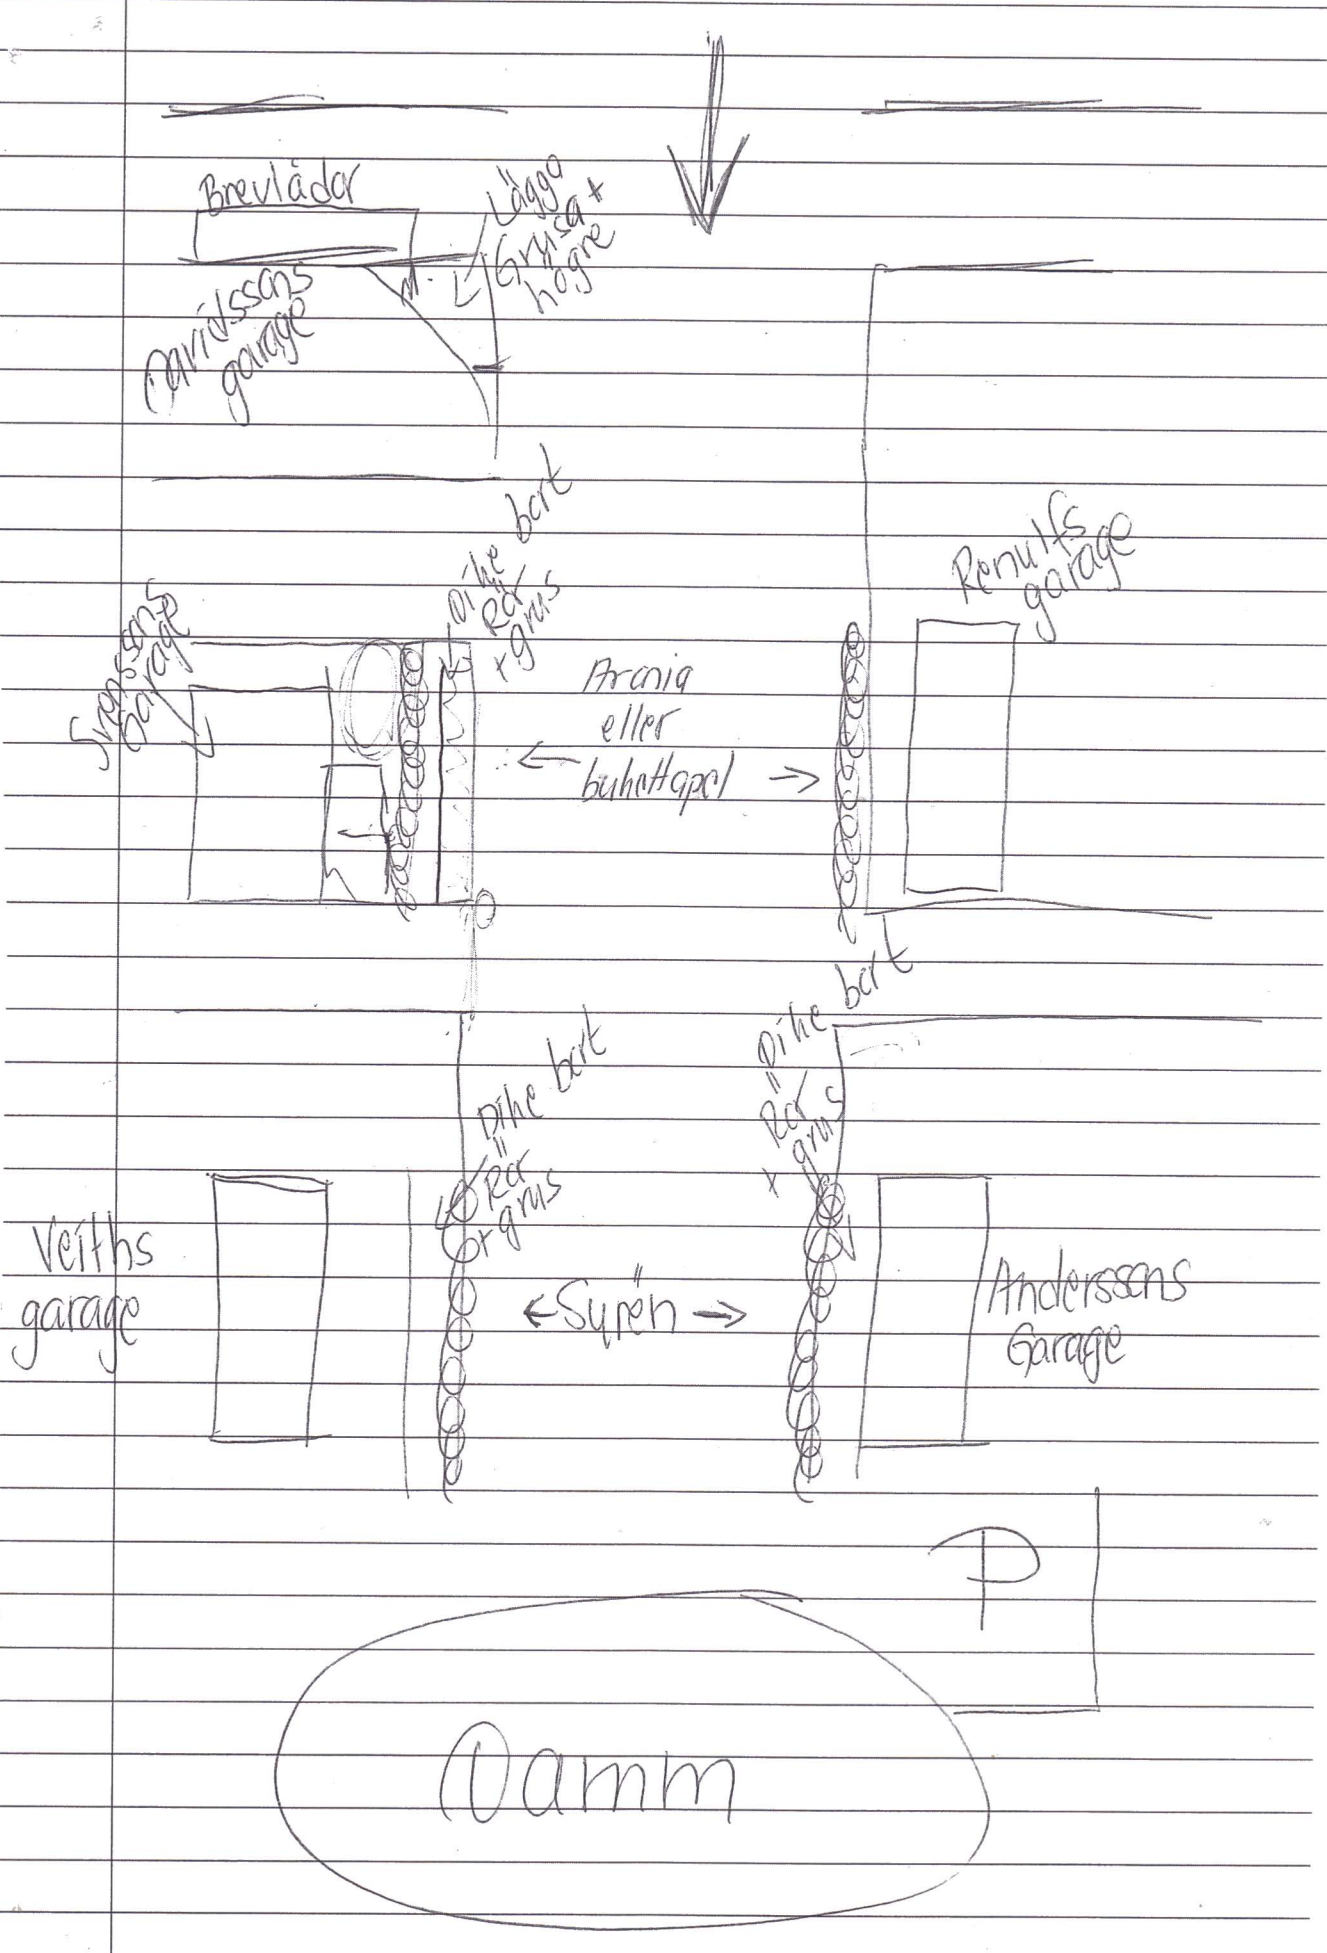 Brevlådor
Lägga
Grusa +
högre
Davidssons
garage
Dike bort
Rör
+ grus
Renulfs
garage
Svenssons
Garage
Aronia
eller
buketapel
Dike bort
Rör
+ grus
Dike bort
Rör
+ grus
Veiths
garage
Syrén
Anderssons
Garage
P
Damm